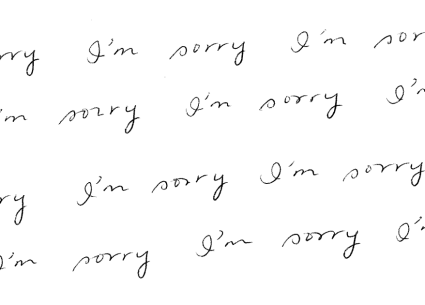 rry I'm sorry I'm sor
'm sorry I'm sorry I'm
ry I'm sorry I'm sorry
I'm sorry I'm sorry I'